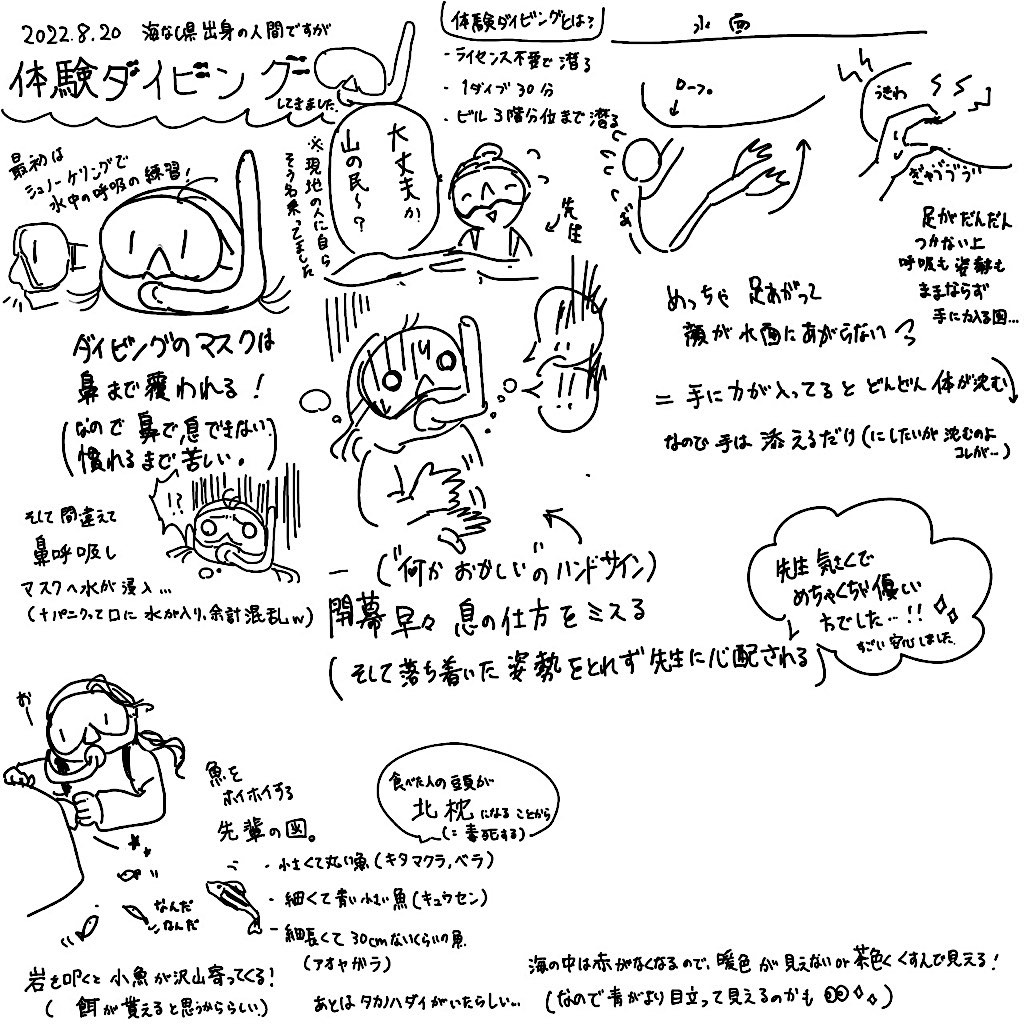 2022.8.20 海なし県出身の人間ですが
体験ダイビング
してきました。
体験ダイビングとは?
・ライセンス不要で潜る
・1ダイブ30分
・ビル3階分位まで潜る
最初は
シュノーケリングで
水中の呼吸の練習!
大丈夫か
山の民〜?
※現地の人に自ら
そう名乗ってました
先生
水面
ロープ
うきわ
ぎゅううう
足がだんだん
つかない上
呼吸も姿勢も
ままならず
手に力入る図…
めっちゃ足あがって
顔が水面にあがらない
=手に力が入ってるとどんどん体が沈む
なので手は添えるだけ(にしたいが沈むのよ
コレが…)
ダイビングのマスクは
鼻まで覆われる!
(なので鼻で息できない
慣れるまで苦しい。)
!!
そして間違えて
鼻呼吸し
マスクへ水が浸入…
(+パニクって口に水が入り、余計混乱w)
!?
("何かおかしい"のハンドサイン)
開幕早々息の仕方をミスる
(そして落ち着いた姿勢をとれず先生に心配される)
先生気さくで
めちゃくちゃ優しい
方でした…!!
すごい安心しました。
お
魚を
ホイホイする
先輩の図。
食べた人の頭が
北枕になることから
(=毒死する)
・小さくて丸い魚(キタマクラ,ベラ)
・細くて青い小さい魚(キュウセン)
・細長くて30cmないくらいの魚
(アオヤガラ)
なんだ
なんだ
岩を叩くと小魚が沢山寄ってくる!
(餌が貰えると思うかららしい)
あとはタカノハダイがいたらしい…
海の中は赤がなくなるので、暖色が見えないor茶色くくすんで見える!
(なので青がより目立って見えるのかも)